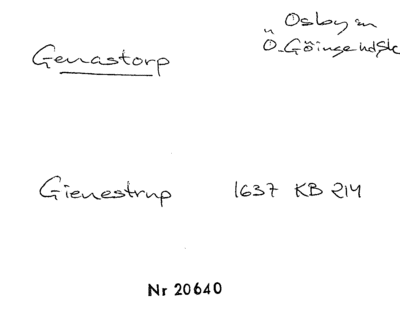 Genastorp
Osby sn
Ö. Göinge hd Sk
Gienestrup 1637 KB 214
Nr 20640